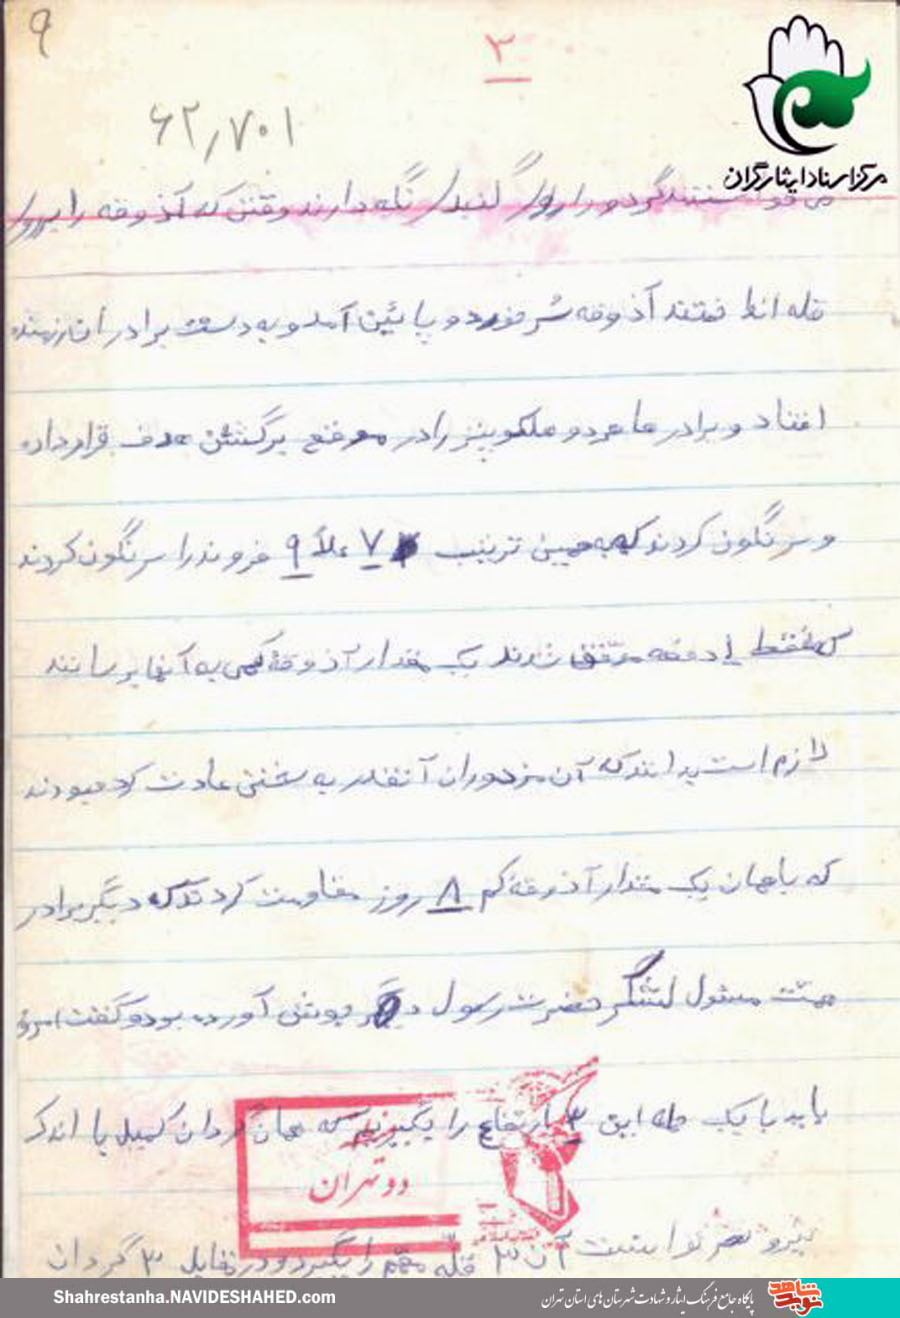 ۹
۳
۶۲٫۷۰۱
مرکز اسناد ایثارگران
می‌خواستند گردو را روی گنبد نگه دارند وقتی که آذوقه را بروی
قله انداختند آذوقه سُر خورد و پائین آمد و به دست برادران رزمنده
افتاد و برادر ما هر دو هلکوپتر را در موقع برگشتن هدف قرار داده
و سرنگون کردند که به همین ترتیب ۷ الاً ۹ فروند را سرنگون کردند
که فقط ۱ دفعه موفق شدند یک مقدار آذوقه کمی به آنها برسانند
لازم است بدانند که آن مزدوران آنقدر به سختی عادت کرده بودند
که با همان یک مقدار آذوقه کم ۸ روز مقاومت کردند که دیگر برادر
همت مسئول لشگر حضرت رسول دیگر جوش آورده بود و گفت امروز
باید با یک حمله این ۳ ارتفاع را بگیریم که همان گردان کمیل با اندک
دو تهران
نیرو نصر توانست آن ۳ قلّه مهّم را بگیرد و در مقابل ۳ گردان
Shahrestanha.NAVIDESHAHED.com
پایگاه جامع فرهنگ ایثار و شهادت شهرستان های استان تهران
نوید شاهد